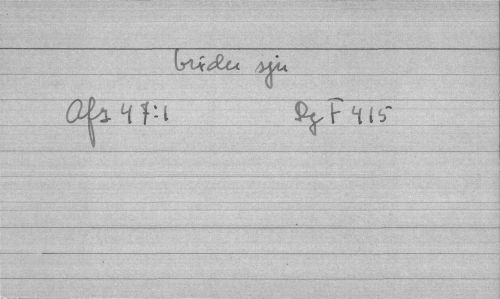 bröder sju
Afz 47:1 Rg F 415